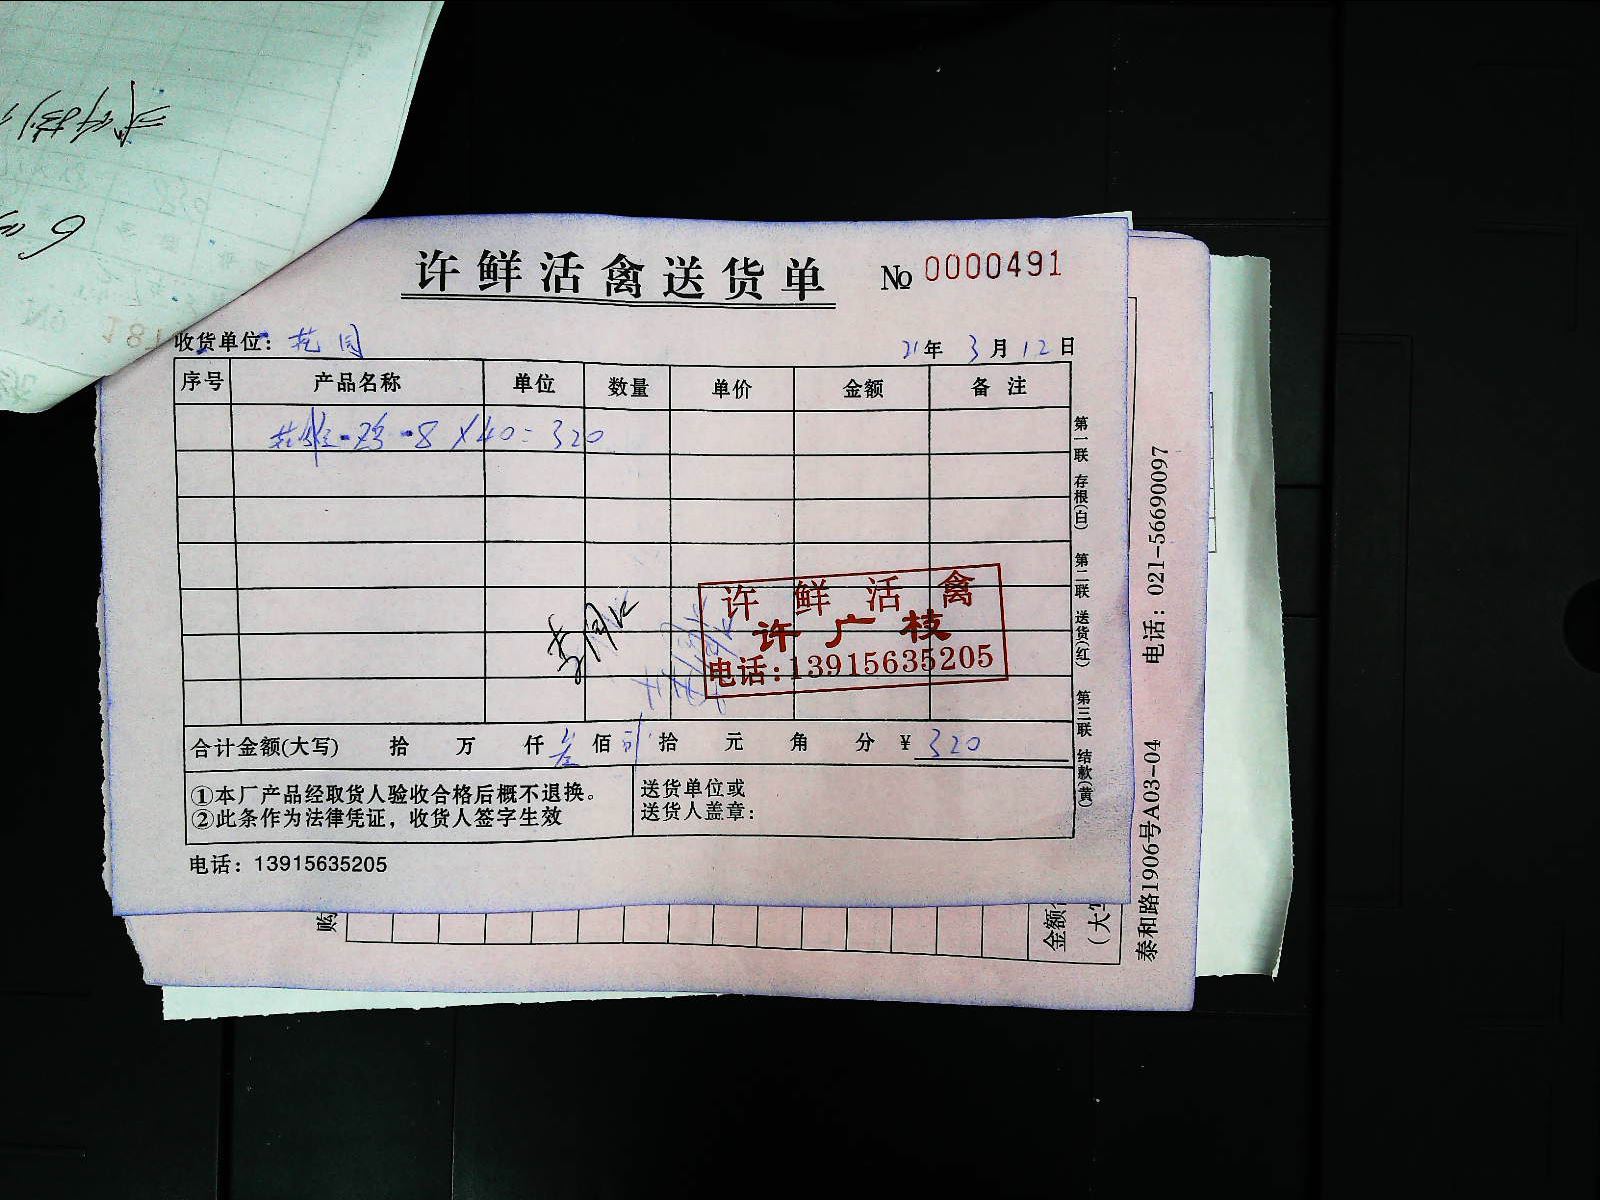 许鲜活禽送货单 No 0000491
收货单位: 花园 21年 3月 12日
序号 产品名称 单位 数量 单价 金额 备注
鸡-8×40=320
许鲜活禽
许广枝
电话:13915635205
合计金额(大写) 拾 万 仟 叁佰 贰拾 元 角 分 ¥ 320
①本厂产品经取货人验收合格后概不退换。
②此条作为法律凭证，收货人签字生效
送货单位或
送货人盖章:
电话: 13915635205
第一联 存根(白) 第二联 送货(红) 第三联 结款(黄)
购
金额
(大写
泰和路1906号A03-04 电话: 021-56690097